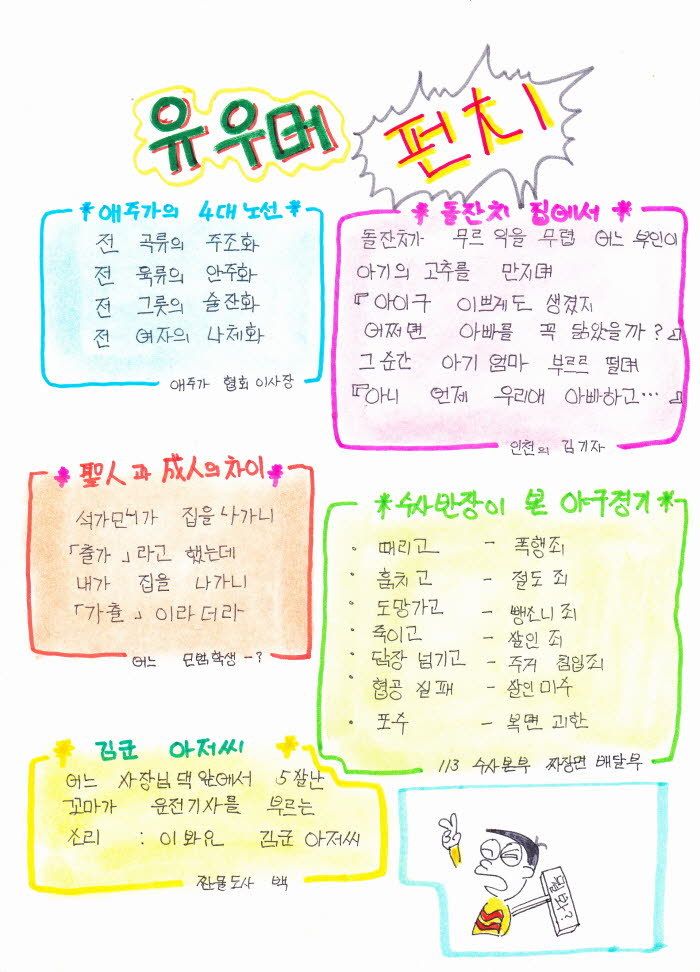 유우머 펀치
* 애주가의 4대노선 *
전 곡류의 주조화
전 육류의 안주화
전 그릇의 술잔화
전 여자의 나체화
애주가 협회 이사장
* 돌잔치 집에서 *
돌잔치가 무르 익을 무렵 어느 부인이
아기의 고추를 만지며
『아이구 이쁘게도 생겼지
어쩌면 아빠를 꼭 닮았을까?』
그 순간 아기 엄마 부르르 떨며
『아니 언제 우리애 아빠하고… 』
인천의 김기자
* 聖人과 成人의 차이 *
석가모니가 집을 나가니
「출가」라고 했는데
내가 집을 나가니
「가출」이라더라
어느 모범학생 -?
* 수사반장이 본 야구경기 *
· 때리고 - 폭행죄
· 훔치고 - 절도죄
· 도망가고 - 뺑소니죄
· 죽이고 - 살인 죄
· 담장 넘기고 - 주거 침입죄
· 협공 실패 - 살인미수
· 포수 - 복면 괴한
113 수사본부 짜장면 배달부
* 김군 아저씨 *
어느 사장님댁 앞에서 5살난
꼬마가 운전기사를 부르는
소리 : 이봐요 김군 아저씨
만물도사 백
뭘봐?